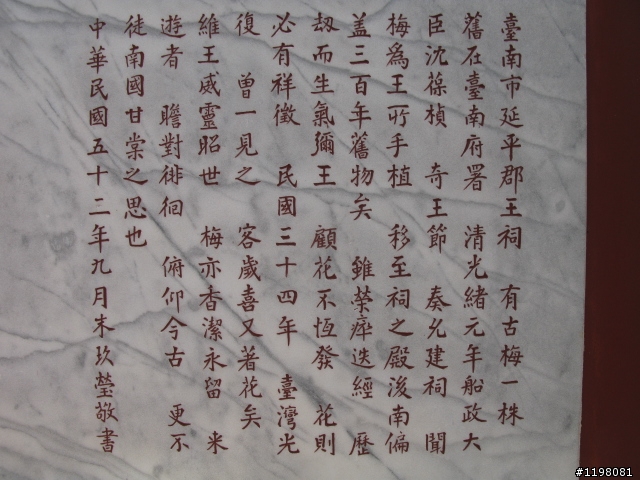 臺南市延平郡王祠　有古梅一株
舊在臺南府署　清光緒元年船政大
臣沈葆楨　奇王節　奏允建祠　聞
梅為王所手植　移至祠之殿後南偏
蓋三百年舊物矣　雖榮瘁迭經　歷
劫而生氣彌王　顧花不恆發　花則
必有祥徵　民國三十四年　臺灣光
復　曾一見之　客歲喜又著花矣
維王威靈昭世　梅亦香潔永留　來
遊者　瞻對徘徊　俯仰今古　更不
徒南國甘棠之思也
中華民國五十二年九月朱玖瑩敬書
#1198081